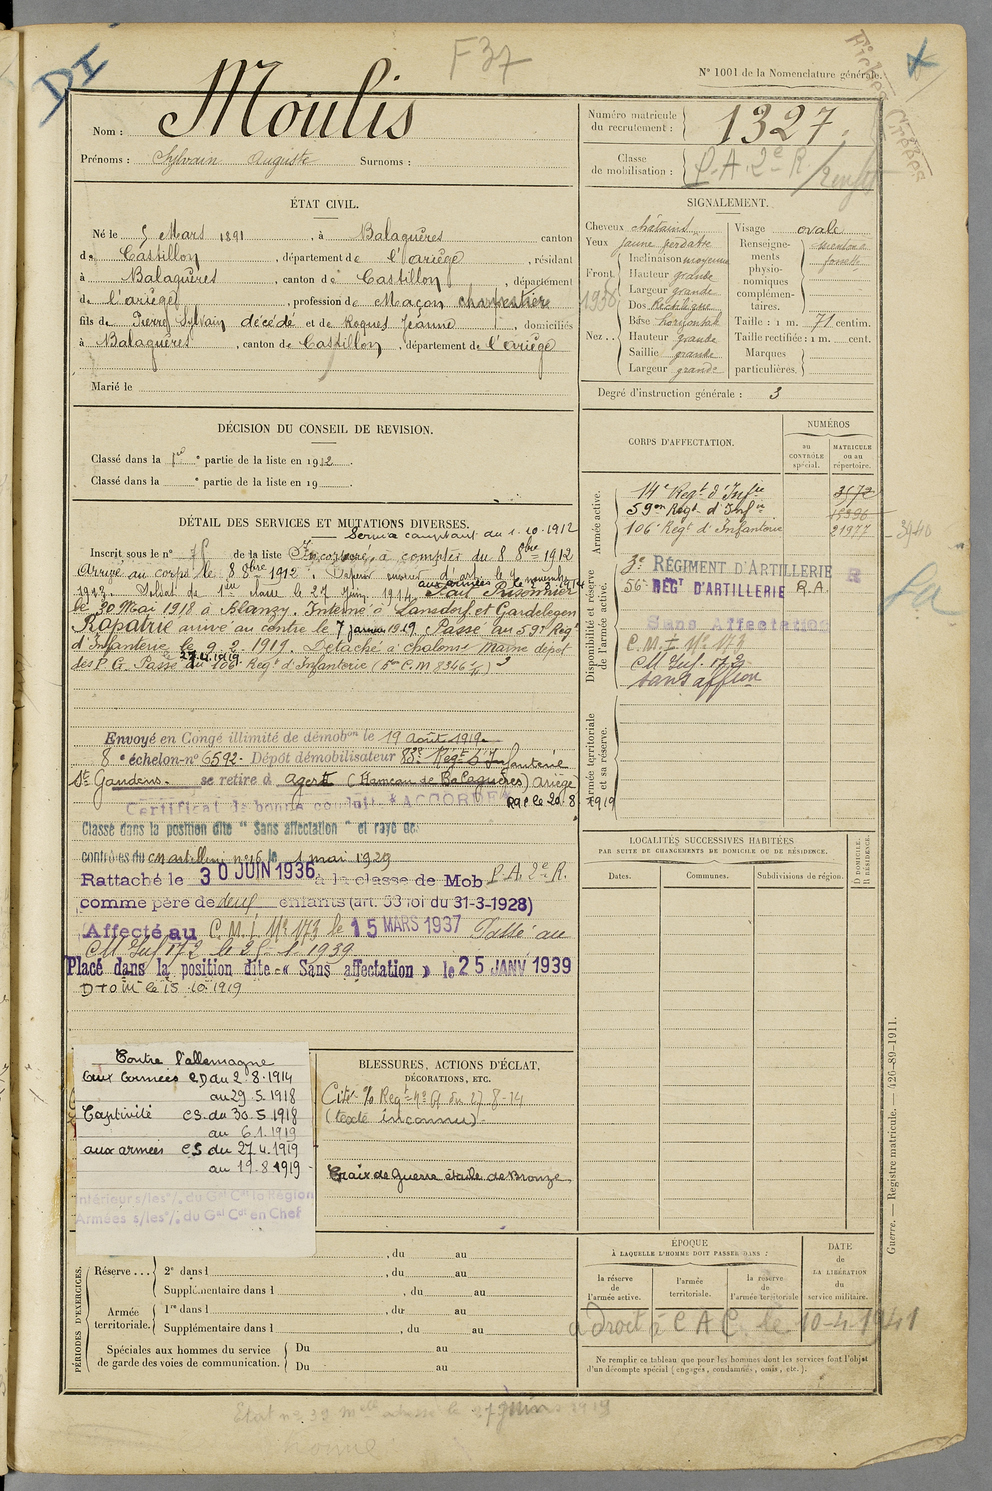 DI
F 37
N° 1001 de la Nomenclature générale.
Fiches Créées
Nom : Moulis
Prénoms : Sylvain Auguste Surnoms :
ÉTAT CIVIL.
Né le 5 Mars 1891, à Balaguères canton
de Castillon, département de l'ariège, résidant
à Balaguères, canton de Castillon, département
de l'ariège, profession de Maçon charpentière
fils de Pierre Sylvain décédé et de Roques Jeanne, domiciliés
à Balaguères, canton de Castillon, département de l'ariège
Marié le
DÉCISION DU CONSEIL DE REVISION.
Classé dans la 1re partie de la liste en 1912.
Classé dans la e partie de la liste en 19
DÉTAIL DES SERVICES ET MUTATIONS DIVERSES.
Service comptant du 1-10-1912
Inscrit sous le n° 75 de la liste Incorporé à compter du 8 8bre 1912
Arrivé au corps le 8 8bre 1912.
1913. Soldat de 1ère classe le 27 Juin 1914. aux armées le 2 Fait Prisonnier
le 30 Mai 1918 à Blanzy. Interné à Lansdorf et Gardelegen
Rapatrié arrivé au centre le 7 janvier 1919. Passé au 59e Regt
d'Infanterie le 9.2.1919. Détaché à Chalons Marne dépôt
des P.G. Passé au 106e Regt d'Infanterie (5e C.M 8346)
27.4.1919
Envoyé en Congé illimité de démobon le 19 Août 1919.
8e échelon n° 6592 - Dépôt démobilisateur 83e Régt d'Infanterie
St Gaudens. se retire à Agert (Hameau de Balaguères) Ariège
Certificat de bonne conduite "ACCORDÉ" Rac le 20.8.1919
Classé dans la position dite " Sans affectation " et rayé des
contrôles du le 1 mai 1929
Rattaché le 30 JUIN 1936 à la classe de Mob P.A. 2e R.
comme père de deux enfants (art. 53 loi du 31-3-1928)
Affecté au C.M.I N° 173 le 15 MARS 1937 Passé au
CM Inf 172 le 25-1-1939
Placé dans la position dite « Sans affectation » le 25 JANV 1939
le 15.10.1919
Contre l'allemagne
Aux Armées CD du 2-8-1914
au 29.5.1918
Captivité CS du 30.5.1918
au 6.1.1919
aux armées CS du 27.4.1919
au 19.8.1919
Intérieur s/les °/. du Gal Ct la Région
Armées s/les °/. du Gal Ct en Chef
BLESSURES, ACTIONS D'ÉCLAT,
DÉCORATIONS, ETC.
Cité % Regt n° 9 du 27-8-14
(texte inconnu).
Croix de Guerre étoile de Bronze
PÉRIODES D'EXERCICES.
, du au
Réserve ... 2e dans l , du au
Supplémentaire dans l , du au
Armée territoriale. 1re dans l , du au
Supplémentaire dans l , du au
Spéciales aux hommes du service
de garde des voies de communication.
Du au
Du au
Numéro matricule du recrutement : 1327.
Classe de mobilisation : P.A. 2e R.
SIGNALEMENT.
Cheveux châtains
Yeux jaune verdâtre
1936
Front. Inclinaison moyenne
Hauteur grande
Largeur grande
Nez .. Dos Rectiligne
Base horizontale
Hauteur grande
Saillie grande
Largeur grande
Visage ovale
Renseignements physionomiques complémentaires. menton à fossette
Taille : 1 m. 71 centim.
Taille rectifiée : 1 m. cent.
Marques particulières.
Degré d'instruction générale : 3
CORPS D'AFFECTATION.
NUMÉROS
au CONTRÔLE spécial.
MATRICULE ou au répertoire.
Armée active.
14e Régt d'Infie 3672
59e Régt d'Infie 15396
106e Régt d'Infanterie 21977 - 3940
Disponibilité et réserve de l'armée active.
3e RÉGIMENT D'ARTILLERIE R
56e RÉGT D'ARTILLERIE R.A.
Sans Affectation
C.M.I N° 173
CM Inf. 172
Sans affion
Armée territoriale et sa réserve.
LOCALITÉS SUCCESSIVES HABITÉES
PAR SUITE DE CHANGEMENTS DE DOMICILE OU DE RÉSIDENCE.
Dates.
Communes.
Subdivisions de région.
D DOMICILE. R RÉSIDENCE.
ÉPOQUE
À LAQUELLE L'HOMME DOIT PASSER DANS :
la réserve de l'armée active.
l'armée territoriale.
la réserve de l'armée territoriale
DATE DE LA LIBÉRATION du service militaire.
a droit à C A C. le 10-4-1941
Ne remplir ce tableau que pour les hommes dont les services font l'objet
d'un décompte spécial (engagés, condamnés, omis, etc.).
Guerre. — Registre matricule. — 426-89-1911.
Etat n° 39 le 27 juin 1919